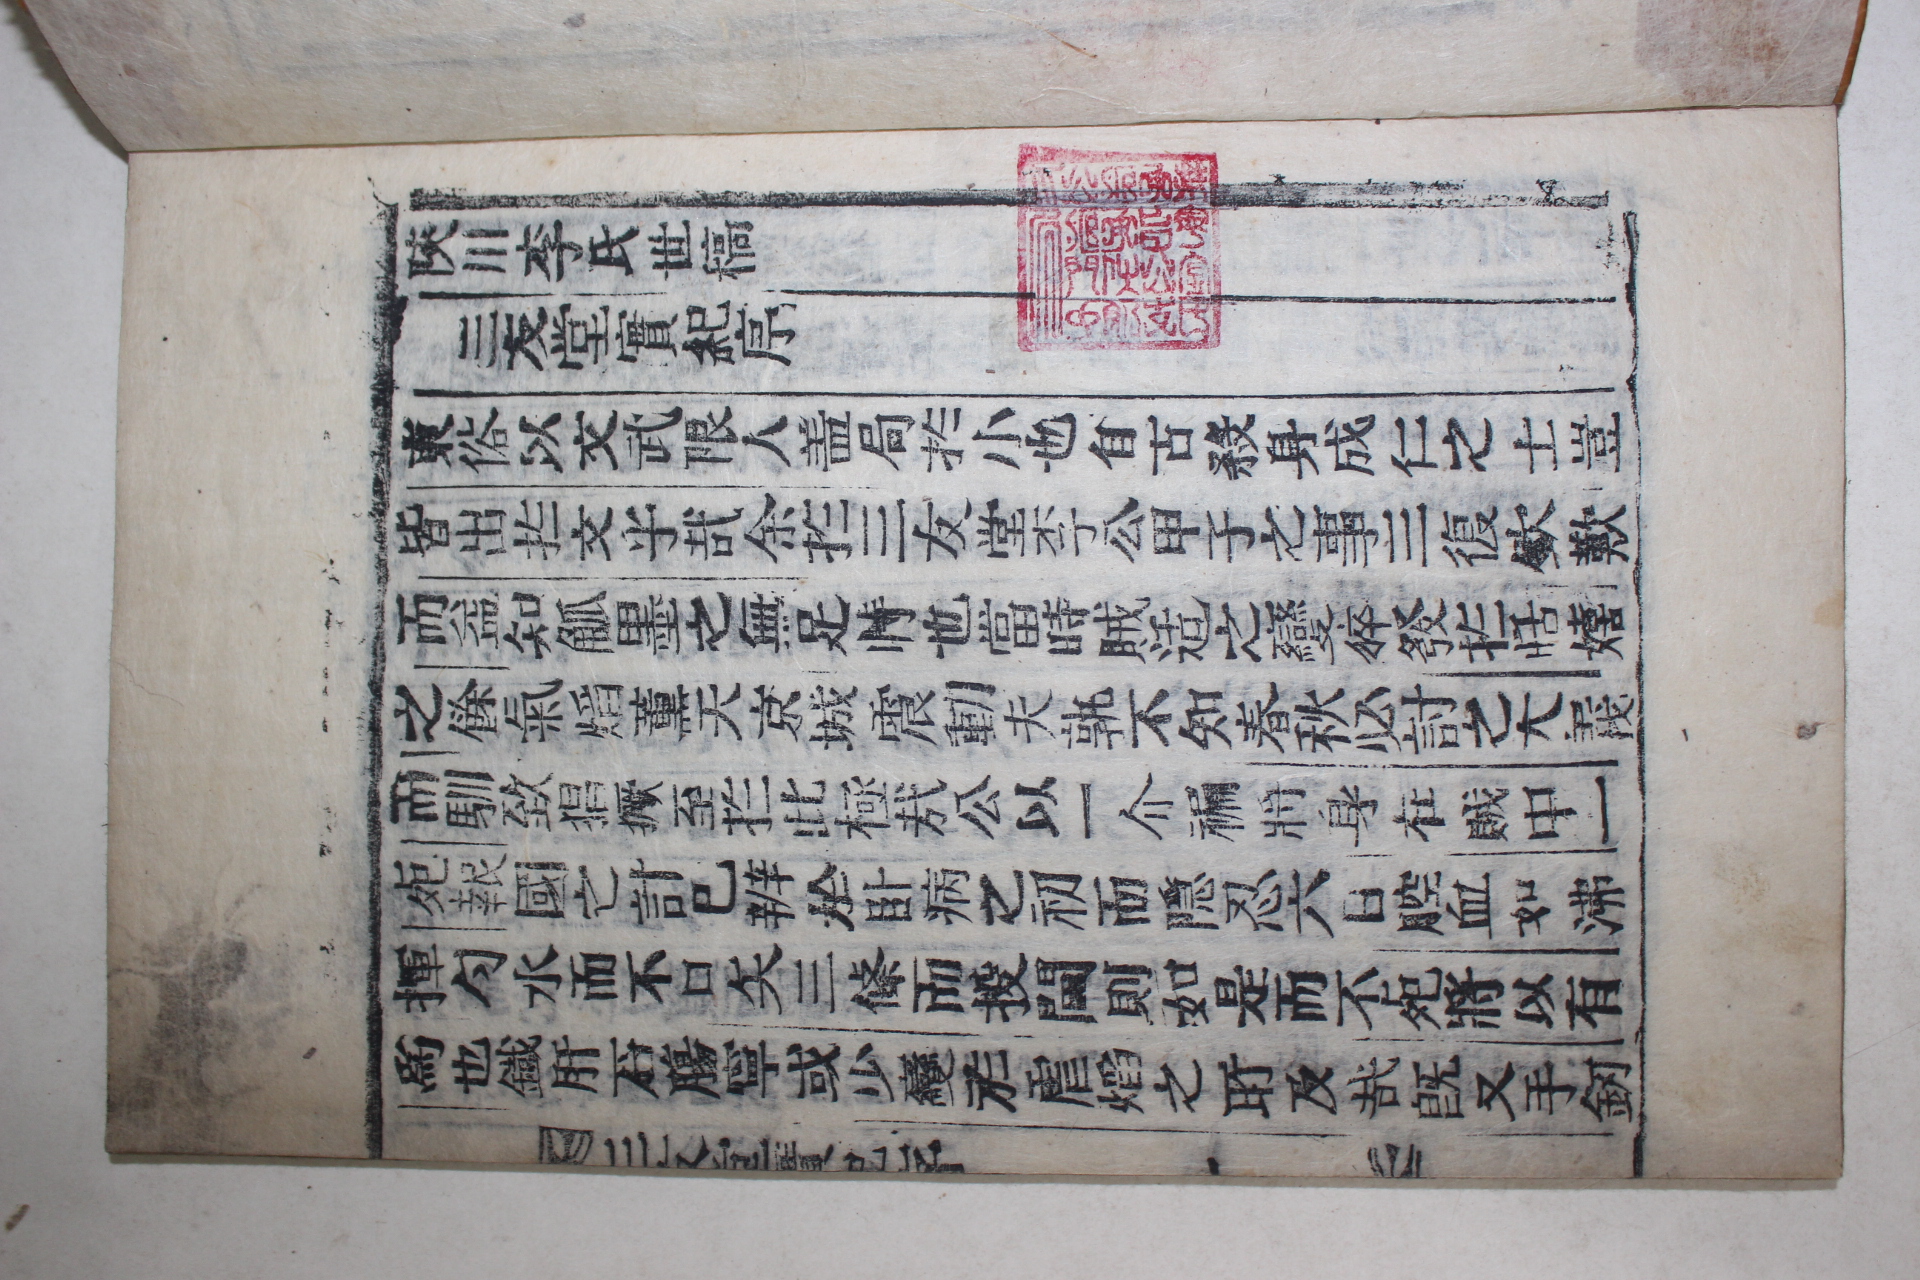 陜川李氏世稿
三友堂實紀序
東俗以文武限人盖局扵小也自古殺身成仁之士豈
皆出扵文乎哉余扵三友堂李公甲子之事三復欽歎
而益知觚墨之無足恃也當時賊适之變猝發扵恬嬉
之餘氣焰薰天京城震動夫孰不知春秋必討之大義
而馴致猖獗至扵此極哉公以一介褊將身在賊中一
死報國之計已辨於卧病之初而隱忍六日腔血如沸
揮勺水而不口矢三條而投閫則如是而不死將以有
爲也鐵肝石膓寧或少變於虐焰之所及哉旣又手劒
三友堂實紀序